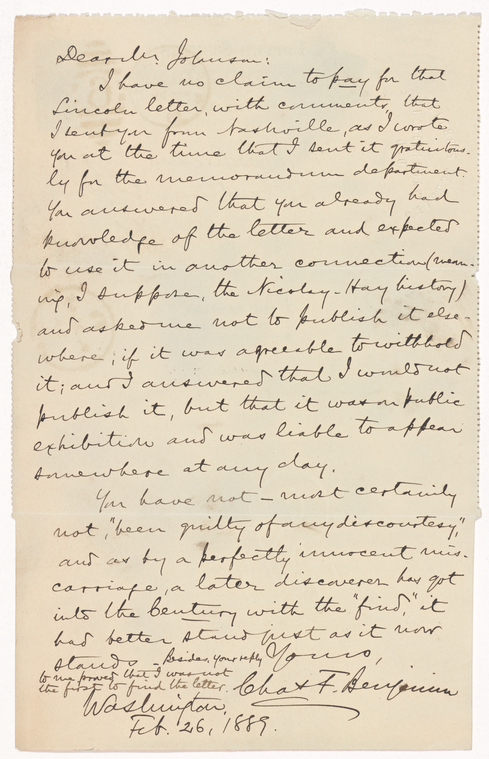 Dear Mr. Johnson:
I have no claim to pay for that
Lincoln letter, with comments, that
I sent you from Nashville, as I wrote
you at the time that I sent it gratuitous-
ly for the memorandum department.
You answered that you already had
knowledge of the letter and expected
to use it in another connection (mean-
ing, I suppose, the Nicolay-Hay history)
and asked me not to publish it else-
where, if it was agreeable to withhold
it; and I answered that I would not
publish it, but that it was on public
exhibition and was liable to appear
somewhere at any day.
You have not – most certainly
not, "been guilty of any discourtesy",
and as by a perfectly innocent mis-
carriage, a later discoverer has got
into the Century with the "find," it
had better stand just as it now
stands. – Besides, your reply
to me proved that I was not
the first to find the letter.
Yours,
Chas F. Benjamin
Washington,
Feb. 26, 1889.